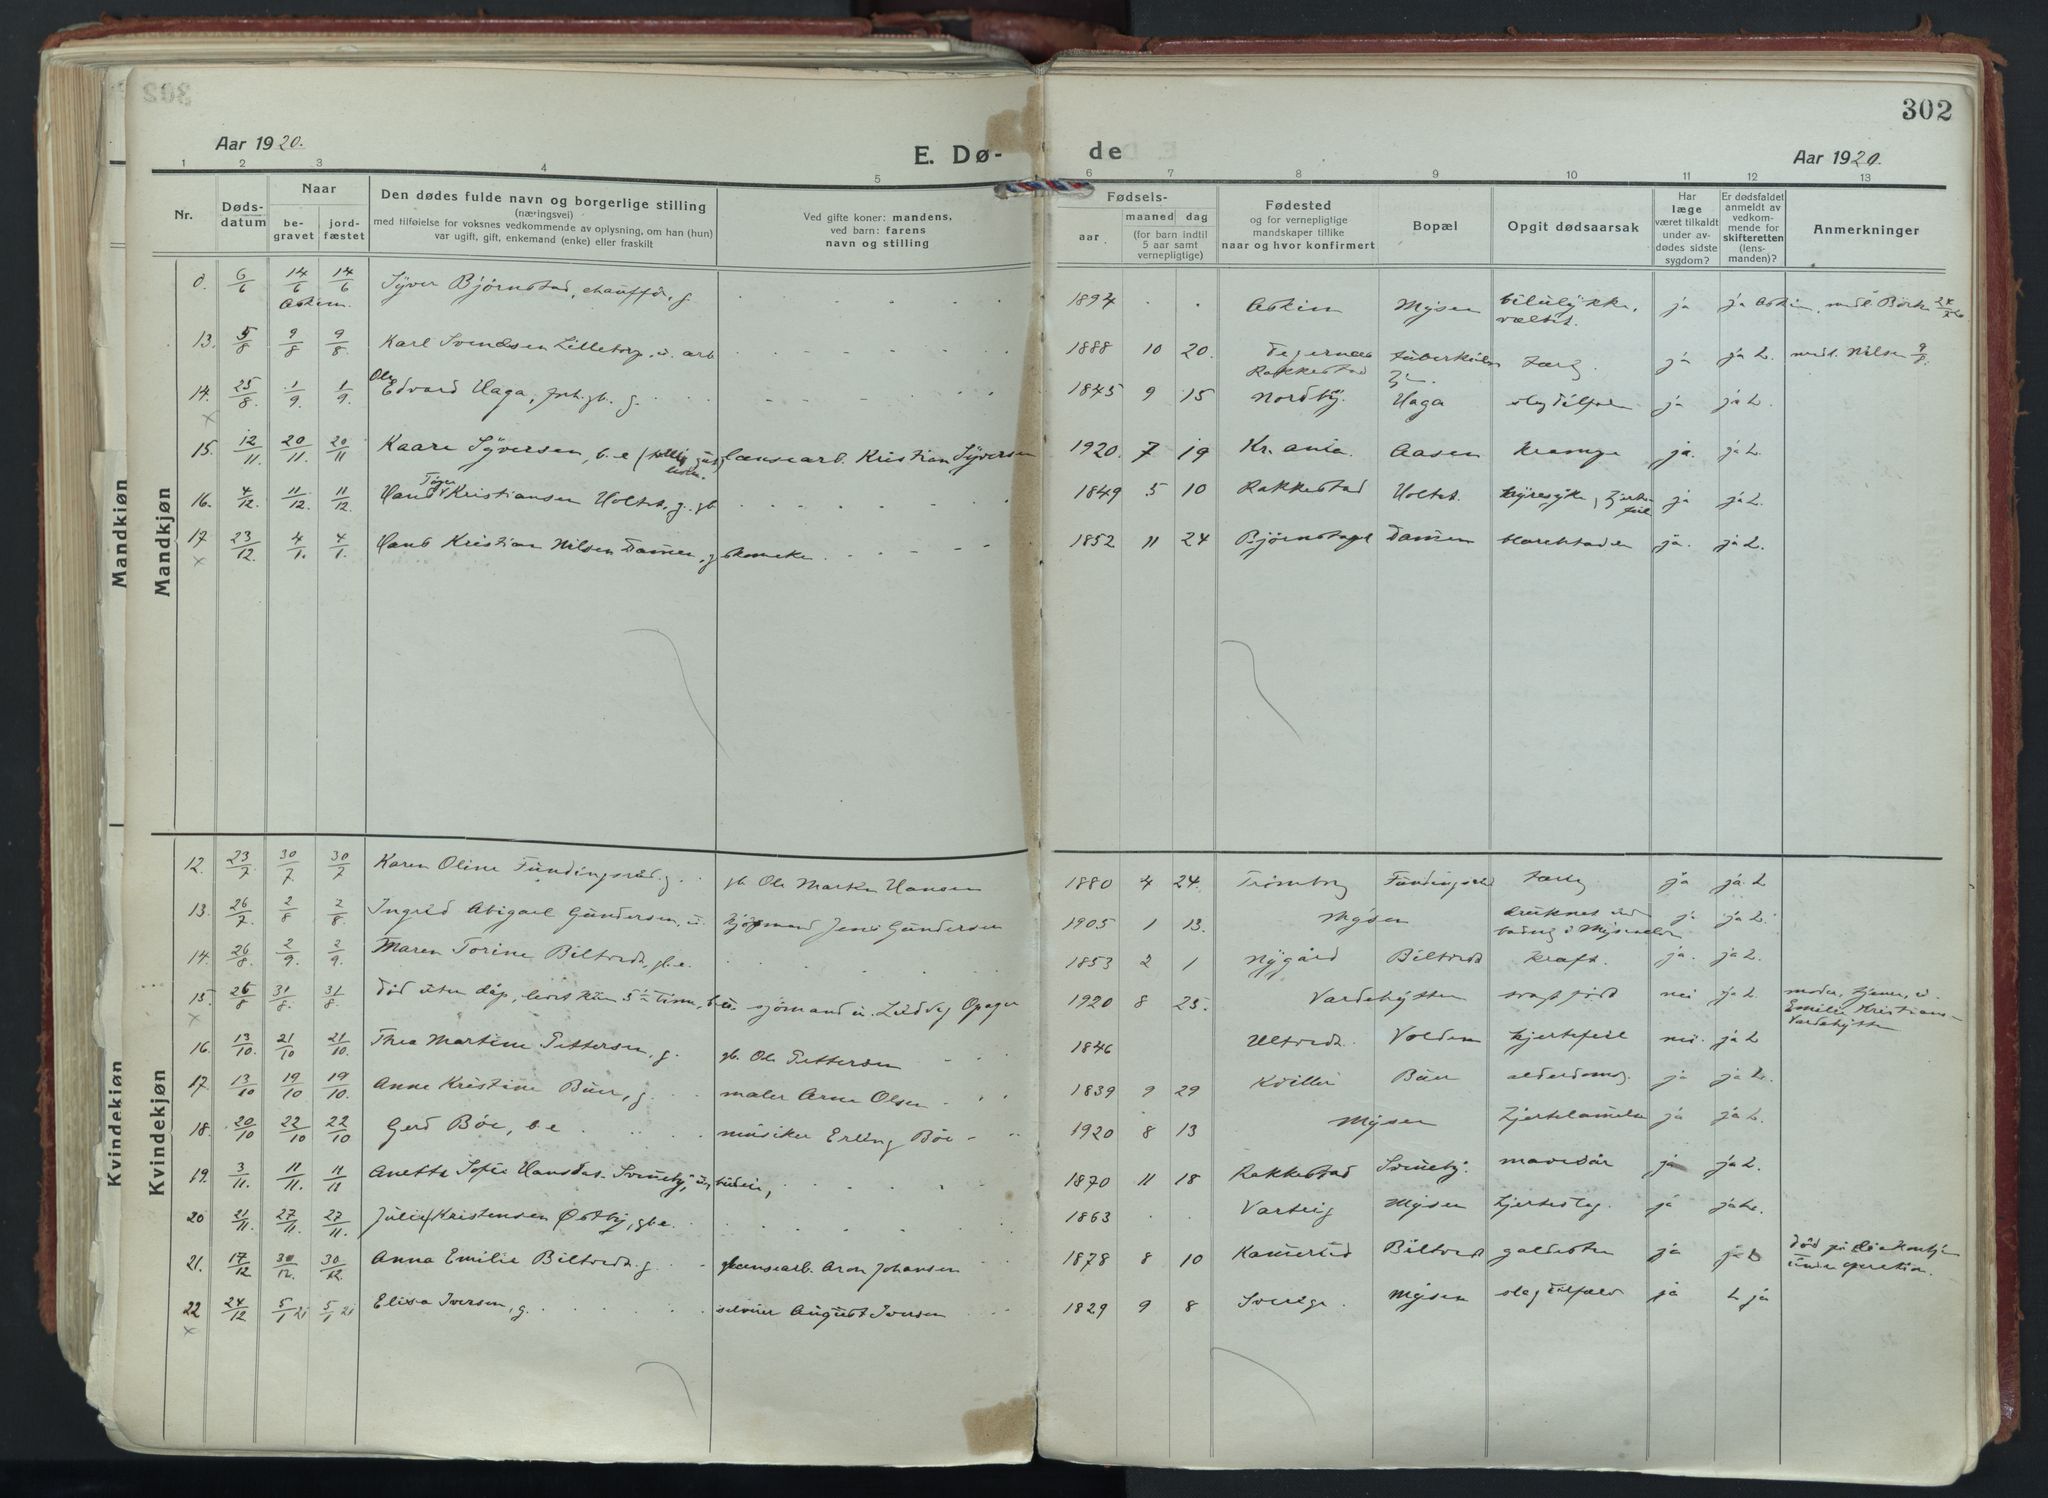 302
Aar 1920.
E. Dø-
de
Aar 1920.
1 2 3 4 5 6 7 8 9 10 11 12 13
Nr.
Døds-
datum
Naar
be-
gravet
jord-
fæstet
Den dødes fulde navn og borgerlige stilling
(næringsvei)
med tilføielse for voksnes vedkommende av oplysning, om han (hun)
var ugift, gift, enkemand (enke) eller fraskilt
Ved gifte koner: mandens,
ved barn: farens
navn og stilling
Fødsels-
aar
maaned dag
(for barn indtil
5 aar samt
vernepligtige)
Fødested
og for vernepligtige
mandskaper tillike
naar og hvor konfirmert
Bopæl
Opgit dødsaarsak
Har
læge
været tilkaldt
under av-
dødes sidste
sygdom?
Er dødsfaldet
anmeldt av
vedkom-
mende for
skifteretten
(lens-
manden)?
Anmerkninger
Mandkjøn
Mandkjøn
0. 6/6 14/6 14/6 Syver Bjørnstad, chauffør, g. 1894 Askim Mysen bilulykke, ja ja Askim
Askim væltet.
13. 5/8 9/8 9/8 Karl Svendsen Lilletorp, u. arb 1888 10 20. Degernæs Tuberkulose Tærg ja ja L. Nilsen 9/8.
Rakkestad
Ole
14. 25/8. 1/9. 1/9. Edvard Haga, forh. gb. g. 1845 9 15 Nordby. Haga slagtilfælde ja ja L.
15. 12/11. 20/11. 20/11 Kaare Syversen, b. e lænsearb. Kristian Syversen 1920. 7 19 Kr.ania. Aasen Krampe ja. ja L.
16. 4/12. 11/12. 11/12 Hans Kristiansen Holtet, g. gb. 1849 5 10 Rakkestad Holtet. nyresyke, hjertefeil ja ja L.
17 23/12. 4/1. 4/1. Hans Kristian Nilsen Dammen, g 1852 11 24 Dammen ja. ja L.
Kvindekjøn
Kvindekjøn
12. 23/7 30/7 30/7 Karen Oline Fundingsrud. g. gb. Ole Martin Hansen 1880 4 24. Trømborg Fundingsrud Tærg ja ja. L
13. 26/7 2/8 2/8. Ingrid Abigael Gundersen, u. kjøpmand Jens Gundersen 1905 1 13. Mysen druknet ved ja ja L.
bading i Mysenelven
14. 26/8. 2/9. 2/9. Maren Torine Biltvedt, gb. e. 1853 2 1 Nygård Biltvedt Kræft. ja. ja L
15. 26/8 31/8. 31/8. død uten dåp, levet kun 5 1/2 time, b. u. sjømand u. Ludvig Opager 1920 8 25. Vardehytten svagt født nei ja L. moder, tjener, u.
Emilie Kristians-
Vardehytten
16. 13/10. 21/10 21/10. Thea Martine Pettersen, g. gb. Ole Pettersen 1846 Ultvedt. Volden hjertefeil nei. ja L
17. 13/10 19/10 19/10. Anne Kristine Buer, g. maler Arne Olsen 1839 9 29 Buer alderdomsv. ja ja L.
18. 20/10 22/10 22/10 Gerd Bøe, b. e musiker Erling Bøe 1920 8 13 Mysen hjertelamelse ja ja L.
19. 3/11. 11/11. 11/11 Anette Sofie Hansdat. Svineby, u, budeie, 1870 11 18 Rakkestad Svineby. mavesår ja ja L.
20 21/11. 27/11. 27/11. Julie Kristensen Østby, gb e. 1863 Varteig Mysen hjerteslag ja ja L.
21. 17/12 30/12. 30/12. Anna Emilie Biltvedt. g lænsearb. Aron Johansen 1878 8 10 Biltvedt galdesten ja ja L død på diakonhj.
under operation.
22 24/12 5/1 21 5/1 21 Elisa Iversen, g. August Iversen 1829 9 8 Sverige. Mysen slagtilfæld ja L ja